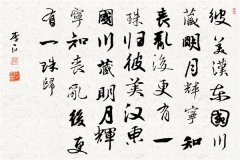 彼美漢東國川
藏明月輝寧知
喪亂後更有一
珠歸彼美漢東
國川藏明月輝
寧知喪亂後更
有一珠歸